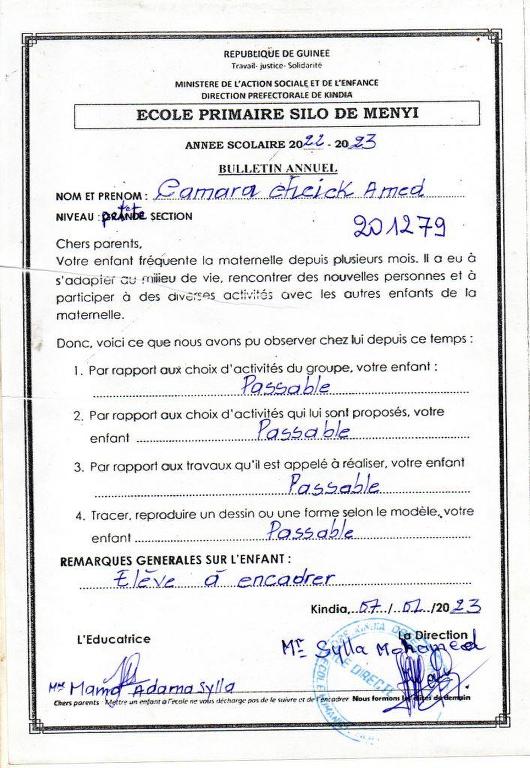 REPUBLIQUE DE GUINEE
Travail- justice- Solidarité
MINISTERE DE L'ACTION SOCIALE ET DE L'ENFANCE
DIRECTION PREFECTORALE DE KINDIA
ECOLE PRIMAIRE SILO DE MENYI
ANNEE SCOLAIRE 2022 - 2023
BULLETIN ANNUEL
NOM ET PRENOM : Camara cheick Amed
NIVEAU : ptite GRANDE SECTION
201279
Chers parents,
Votre enfant fréquente la maternelle depuis plusieurs mois. Il a eu à
s'adapter au milieu de vie, rencontrer des nouvelles personnes et à
participer à des diverses activités avec les autres enfants de la
maternelle.
Donc, voici ce que nous avons pu observer chez lui depuis ce temps :
1. Par rapport aux choix d'activités du groupe, votre enfant :
Passable
2. Par rapport aux choix d'activités qui lui sont proposés, votre
enfant Passable
3. Par rapport aux travaux qu'il est appelé à réaliser, votre enfant
Passable
4. Tracer, reproduire un dessin ou une forme selon le modèle, votre
enfant Passable
REMARQUES GENERALES SUR L'ENFANT :
Elève à encadrer
Kindia, 07/07/2023
L'Educatrice
La Direction
Mr Sylla Mohamed
Mme Mama Adama Sylla
Chers parents : Mettre un enfant à l'ecole ne vous décharge pas de le suivre et de l'encadrer Nous formons les élites de demain